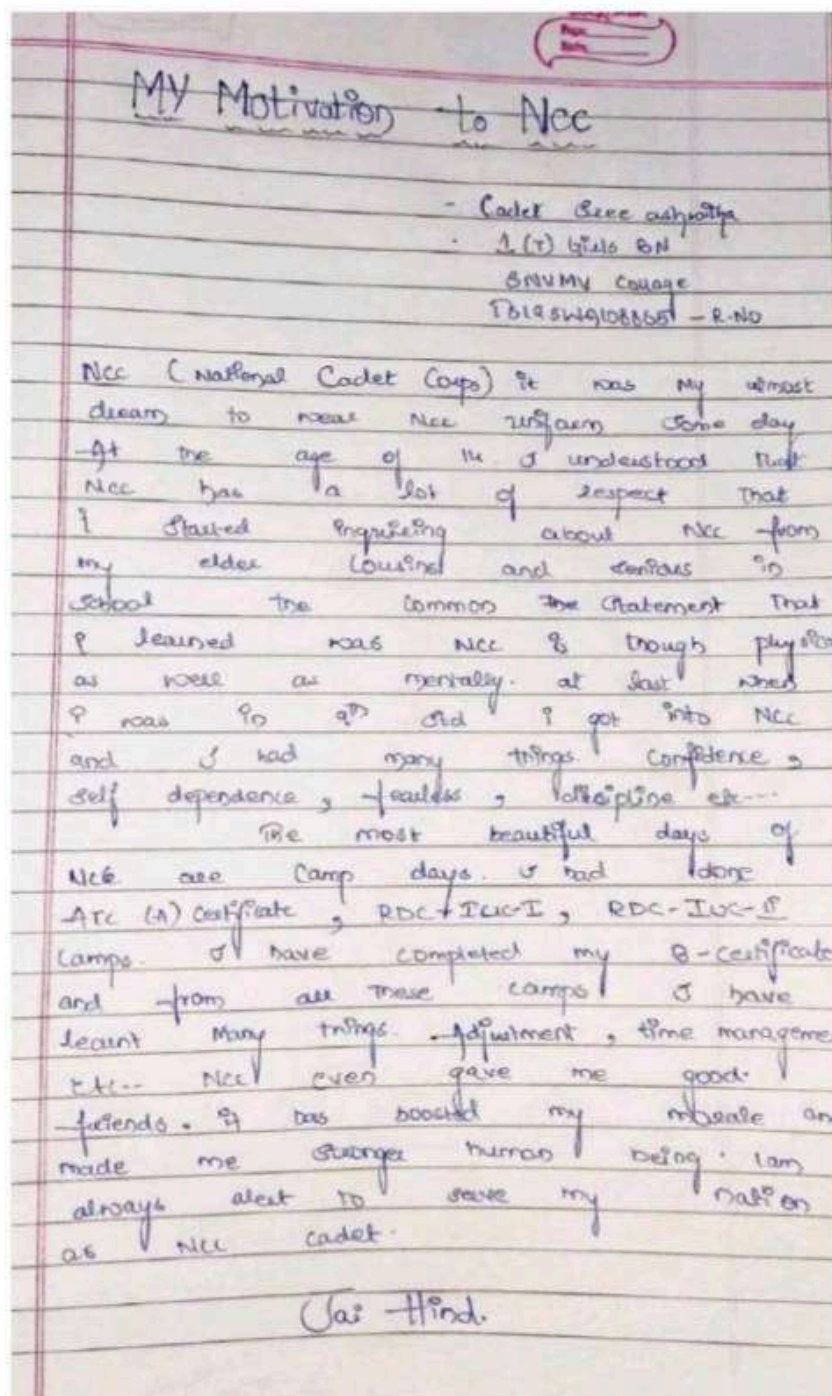 MY Motivation to Ncc
- Cadet Sree
- 1 (T) Girls BN
SNVMV Collage
- R.NO
Ncc (National Cadet Corps) it was my utmost
dream to wear Ncc uniform some day
At the age of 14 I understood that
Ncc has a lot of respect that
I started about Ncc from
my elder cousins and seniors in
school the common the statement that
I learned was Ncc is though
as well as mentally. at last when
I was in 9th std I got into Ncc
and I had many things confidence,
self dependence, fearless, discipline etc---
The most beautiful days of
Ncc are camp days. I had done
ATC (A) certificate, RDC-IUC-I, RDC-IUC-II
camps. I have completed my B-certificate
and from all these camps I have
learnt many things. Adjustment, time manageme
etc-- Ncc even gave me good.
friends. it has boosted my morale an
made me stronger human being. I am
always alert to serve my nation
as Ncc cadet.
Jai Hind.